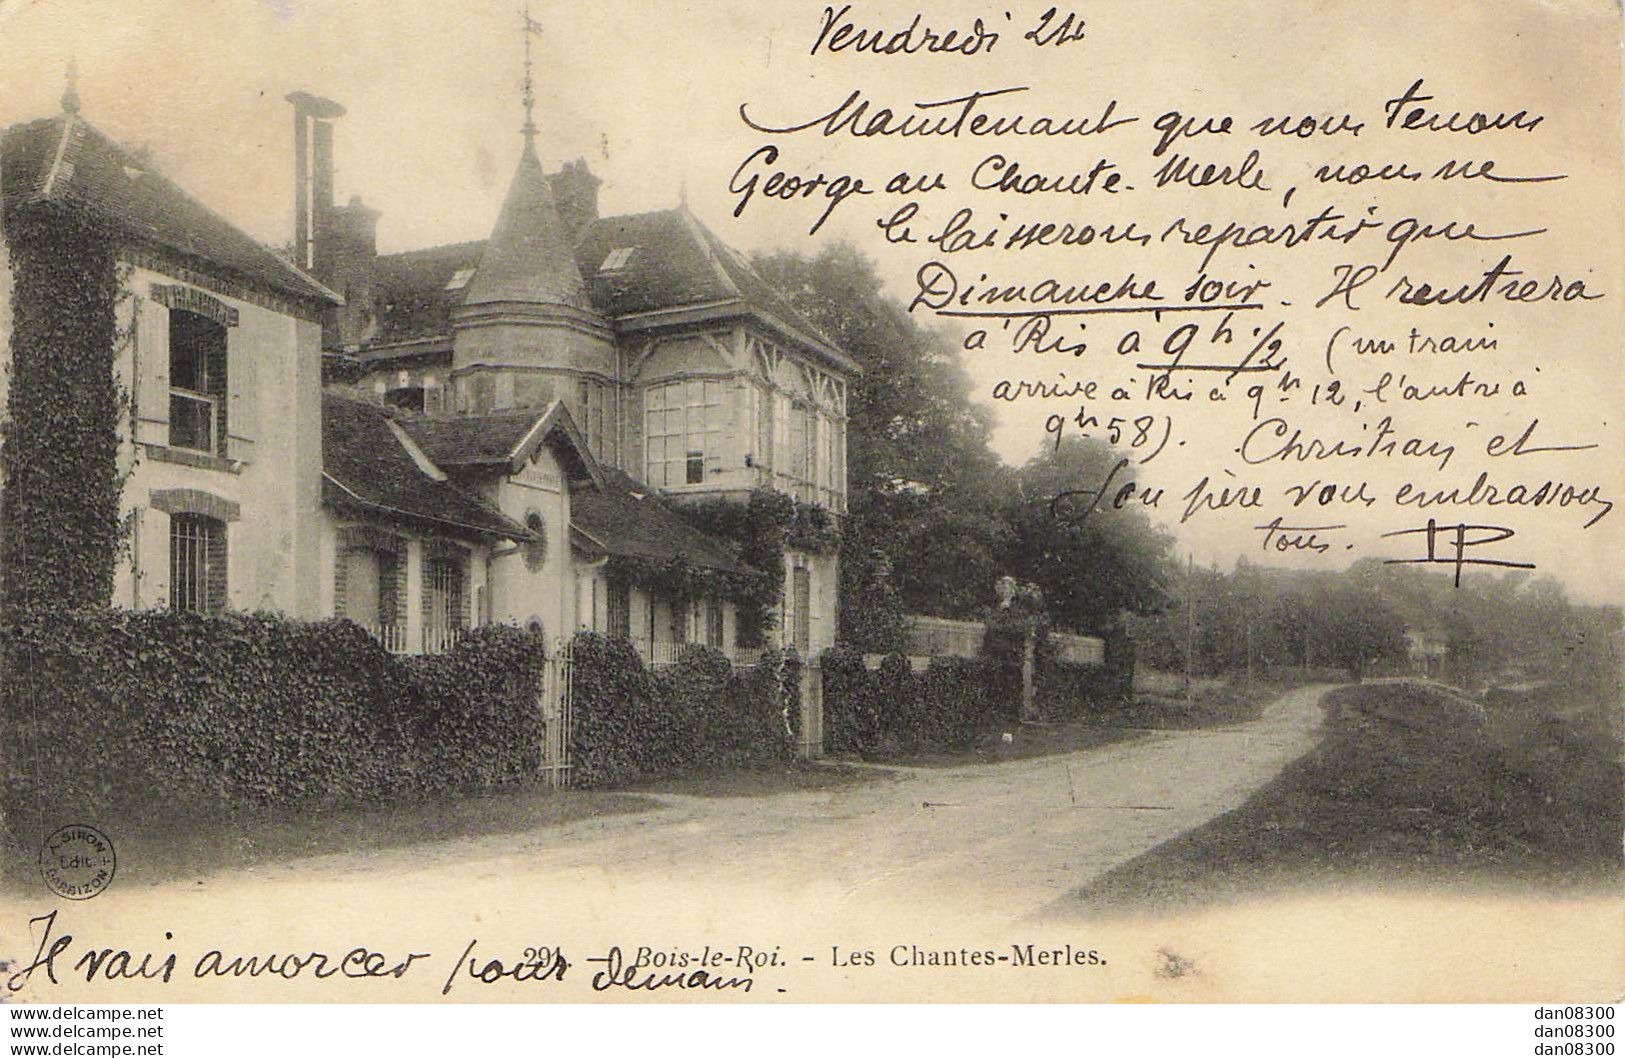 Vendredi 24
Maintenant que nous tenons
George au Chante-Merle, nous ne
le laisserons repartir que
Dimanche soir. Il rentrera
à Ris à 9h 1/2 (un train
arrive à Ris à 9h 12, l'autre à
9h 58). Christian et
son père vous embrassons
tous. HP
A. SIRON
Edit.
BARBIZON
291. - Bois-le-Roi. - Les Chantes-Merles.
Il vais amorcer pour demain.
www.delcampe.net
www.delcampe.net
www.delcampe.net
dan08300
dan08300
dan08300